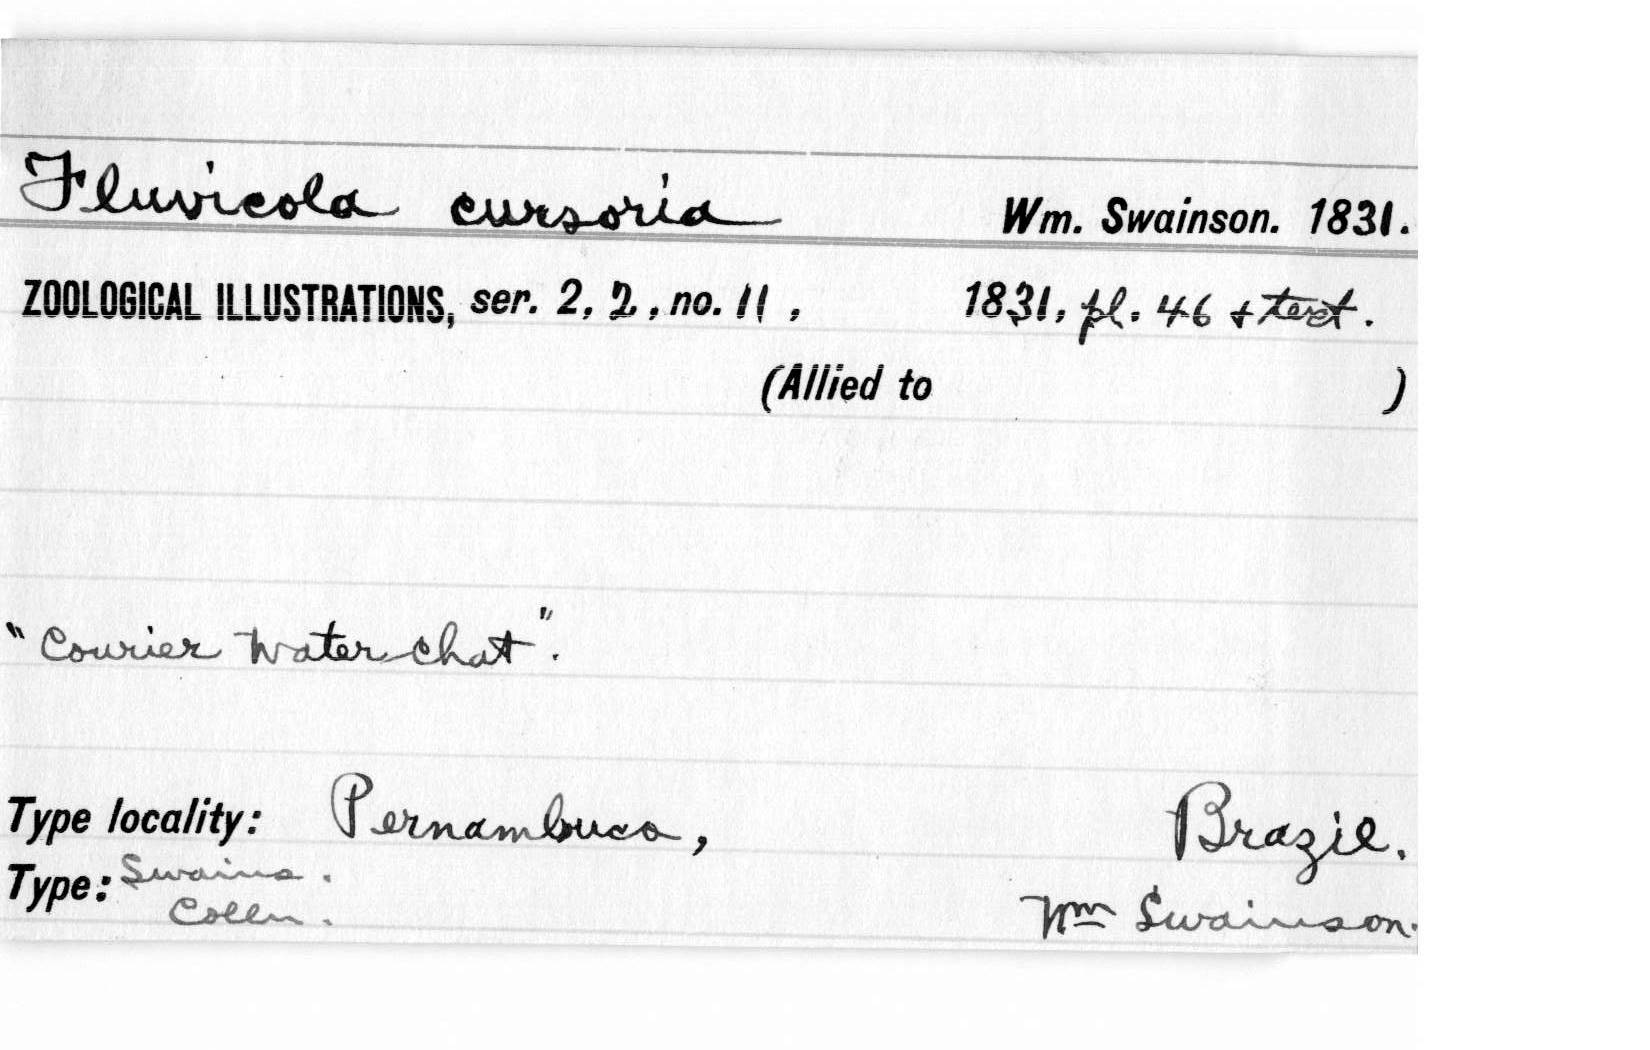 Fluvicola cursoria Wm. Swainson. 1831.
ZOOLOGICAL ILLUSTRATIONS, ser. 2, 2, no. 11, 1831, pl. 46 + text.
(Allied to )
"Courier Water-chat".
Type locality: Pernambuco, Brazil.
Type: Swains.
Colln. Wm Swainson.